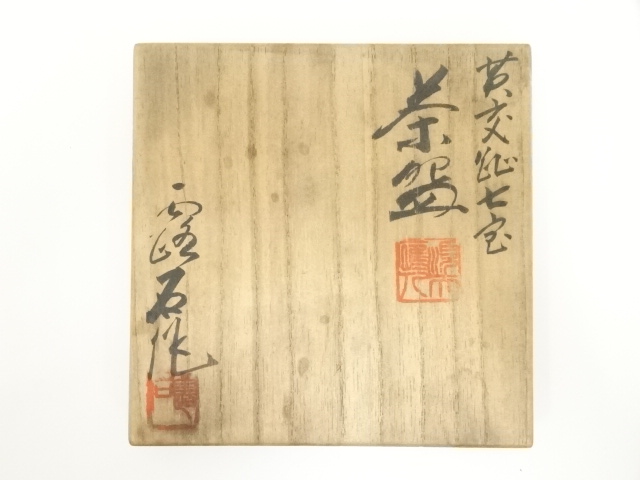 黄交趾七宝
茶盌
露石作